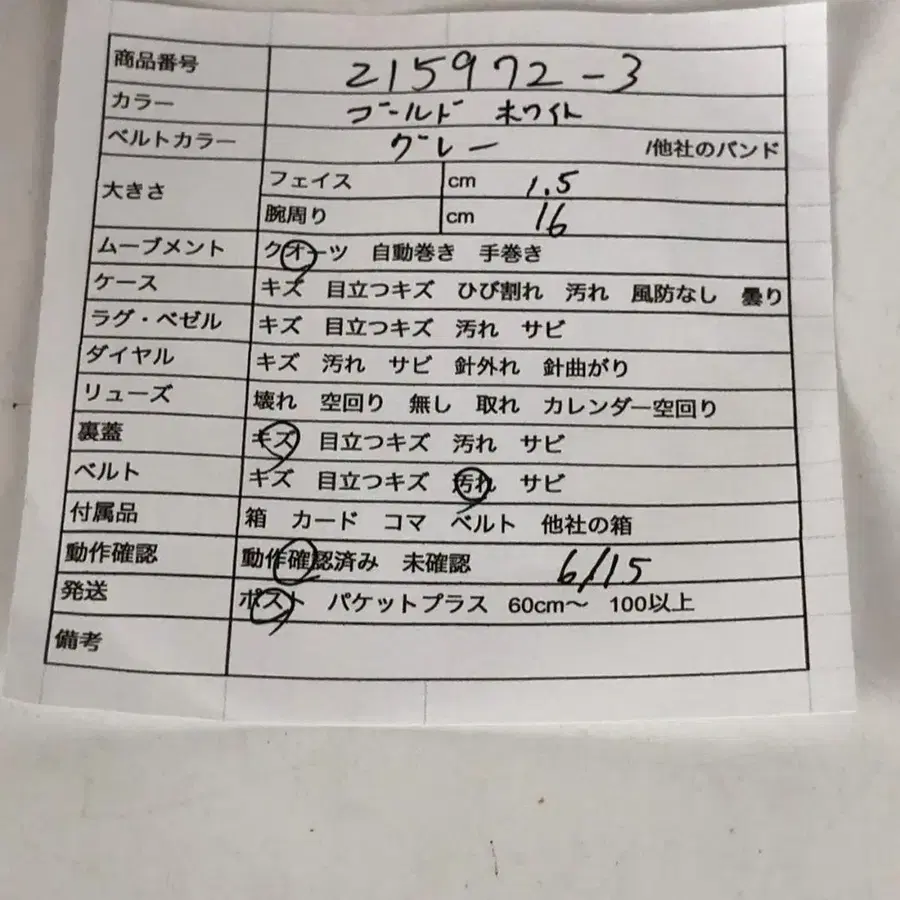 商品番号 215972-3
カラー ゴールド ホワイト
ベルトカラー グレー /他社のバンド
大きさ フェイス cm 1.5
腕周り cm 16
ムーブメント クオーツ 自動巻き 手巻き
ケース キズ 目立つキズ ひび割れ 汚れ 風防なし 曇り
ラグ・ベゼル キズ 目立つキズ 汚れ サビ
ダイヤル キズ 汚れ サビ 針外れ 針曲がり
リューズ 壊れ 空回り 無し 取れ カレンダー空回り
裏蓋 キズ 目立つキズ 汚れ サビ
ベルト キズ 目立つキズ 汚れ サビ
付属品 箱 カード コマ ベルト 他社の箱
動作確認 動作確認済み 未確認 6/15
発送 ポスト パケットプラス 60cm〜 100以上
備考